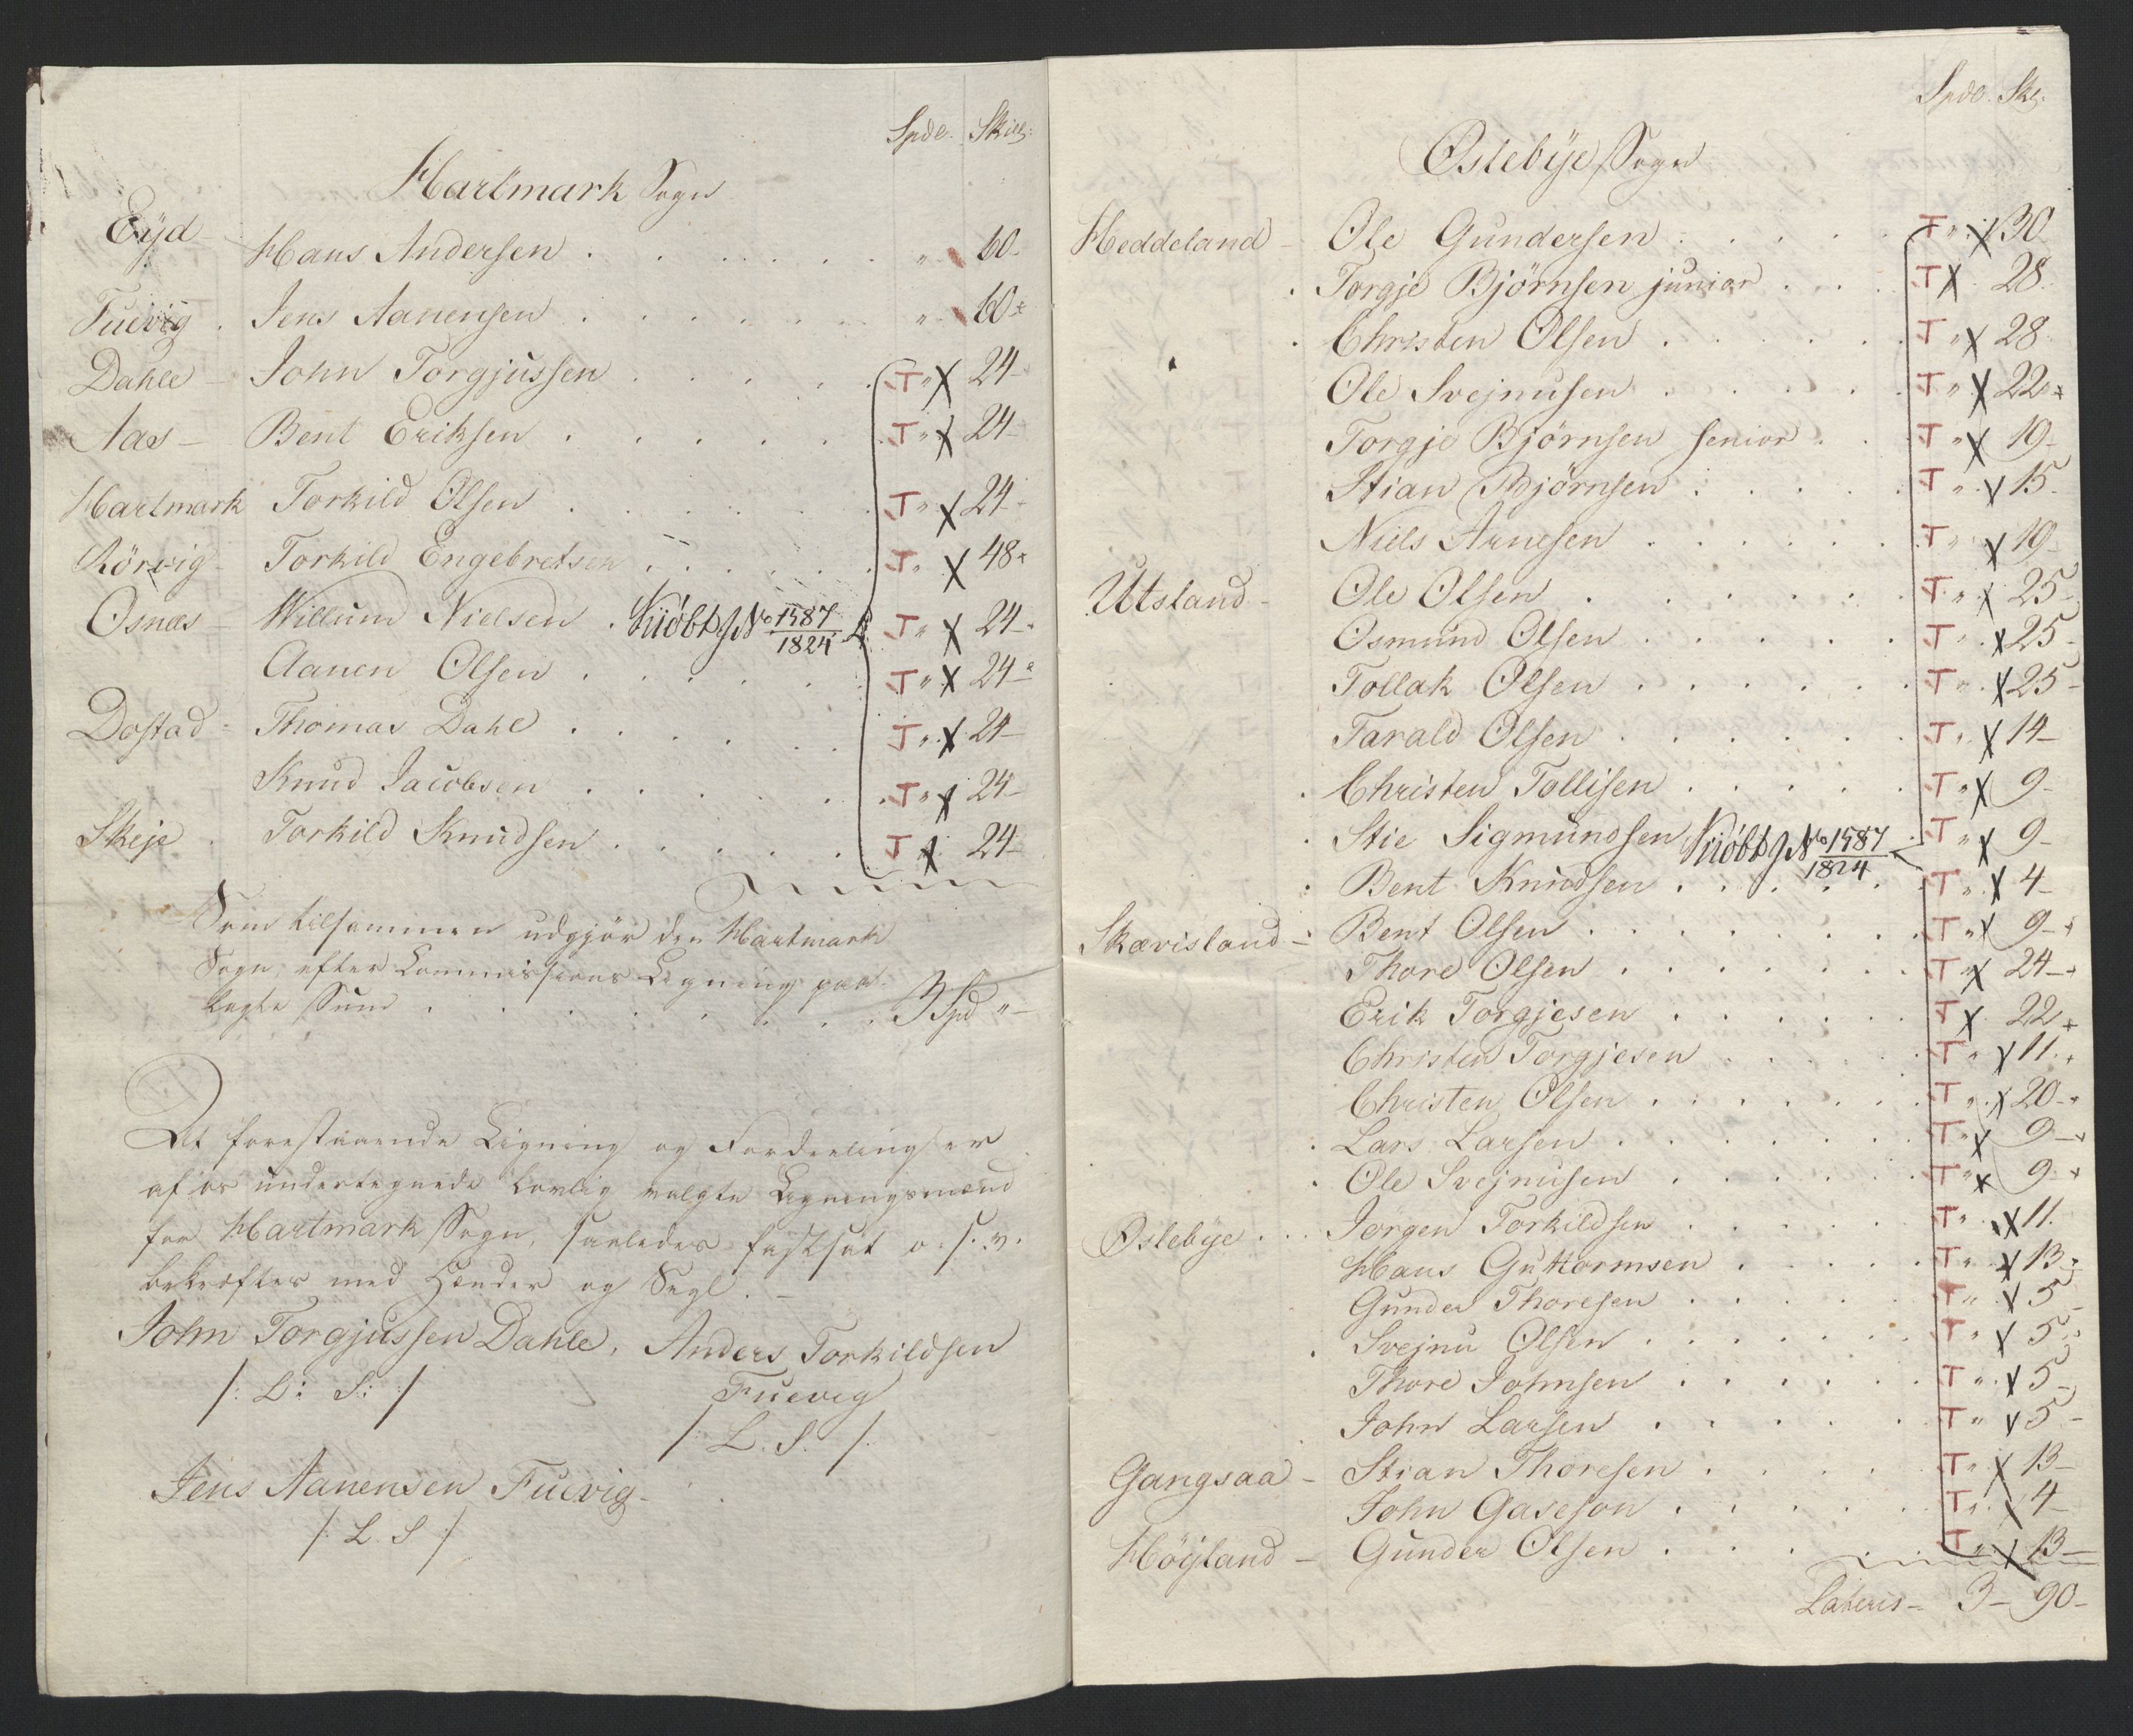 Spde. Skill:
Hartmark Sogn
Eyd - Hans Andersen . . . . . . . " 60-
Fuevig . Jens Aanensen . . . . . . " 60
Dahle John Torgjussen . . . . . T " X 24-
Aas - Bent Eriksen . . . . . . T " X 24-
Hartmark Torkild Olsen . . . . . T " X 24-
Rörvig - Torkild Engebretsen . . . . . T " X 48
Osnæs - Willum Nielsen . Kiöbt J No 1587/1824 T " X 24-
Aanen Olsen . . . . . . T " X 24-
Dostad - Thomas Dahl . . . . . . T " X 24-
Knud Jacobsen . . . . . . T " X 24-
Skeje . Torkild Knudsen . . . . . T X 24-
Som tilsammen udgjör den Hartmark
Sogn, efter Commissions Ligning paa-
lagte Sum . . . . . . . 3 Spd " -
At forestaaende Ligning og Fordeeling er
af os undertegnede lovlig valgte Ligningsmænd
for Hartmark Sogn, saaledes fastsat o. s. v.
bekræftes med Hænder og Segl. -
John Torgjussen Dahle, Anders Torkildsen
/: L: S: / Fuevig
/: L. S. /.
Jens Aanensen Fuevig -
/: L. S :/
Spde. Sk:
Öslebye Sogn
Heddeland - Ole Gundersen . . . . . T " X 30
. Torgje Björnsen junior . . . . T X 28.
. Christen Olsen . . . . . . T " X 28.
Ole Svejnusen . . . . . . T " X 22
Torgje Björnsen senior . . . T " X 19-
Stian Björnsen . . . . . T " X 15.
Niels Arnesen . . . . . . T " X 19-
Utsland - Ole Olsen . . . . . . T " X 25-
Osmund Olsen . . . . . T " X 25-
Tollak Olsen . . . . . . T " X 25-
Tarald Olsen . . . . . . T " X 14-
. Christen Tollisen . . . . . T " X 9-
. Stie Sigmundsen Kiöbt J No 1587/1824 . T " X 9-
. Bent Knudsen . . . . . . T " X 4-
Skævisland - Bent Olsen . . . . . . . T " X 9-
Thore Olsen . . . . . . . T " X 24-
Erik Torgjesen . . . . . . T X 22
Christen Torgjesen . . . . . T " X 11.
Christen Olsen . . . . . . . T " X 20-
. Lars Larsen . . . . . . . T " X 9-
. Ole Svejnusen . . . . . . T " X 9.
Öslebye . . . Jörgen Torkildsen . . . . . T " X 11.
Hans Guttormsen . . . . . T " X 13-
Gunder Thoresen . . . . . T " X 5-
. Svejnu Olsen . . . . . . . T " X 5
Thore Johnsen . . . . . . T " X 5-
John Larsen . . . . . . T " X 5-
Gangsaa - Stian Thoresen . . . . . T " X 13-
John Gaseson . . . . . . T " X 4-
Höyland - Gunder Olsen . . . . . T " X 13-
Lateris - 3 - 90-